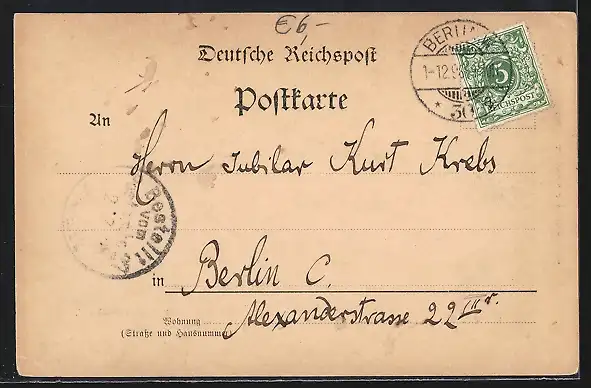 €6,-
Deutsche Reichspost
Postkarte
BERLIN
1-12 9
5
REICHSPOST
An
Herrn Jubilar Kurt Krebs
Bestellt
vom
in Berlin C.
Alexanderstrasse 22 III r.
Wohnung
(Straße und Hausnummer)